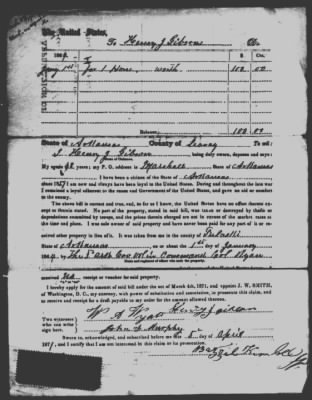 The United States,
To Henry J Gibson Dr.
186
Jany 1st for 1 Horse worth 100 00
Balance, 100 00
State of Arkansas County of Searcy To wit:
I, Henry J Gibson being duly sworn, deposes and says:
My age is years; my P. O. address is Marshall State of Arkansas
I have been a citizen of the State of Arkansas
since 18 and am now and always have been loyal to the United States. During and throughout the late war
I remained a loyal adherent to the cause and Government of the United States, and gave no aid or comfort
to the enemy.
The above bill is correct and true, and, so far as I know, the United States have no offset thereto
except as therein stated. No part of the property, stated in said bill, was taken or damaged by thefts or
depredations committed by troops, and the prices therein charged are not in excess of the market rates at
the time and place. I was sole owner of said property and have never been paid for any part of it or received
other property in lieu of it. It was taken from me in the county of Pulaski
State of Arkansas on or about the 1st day of January
1864, by The 1st Ark Cav Vols in Command Col Ryan
State and regiment of officer who took the property.
received receipt or voucher for said property.
I hereby apply for the amount of said bill under the act of March 4th, 1871, and appoint J. W. SMITH,
of Washington, D. C., my attorney, with power of substitution and revocation, to prosecute this claim, and
to receive and receipt for a draft payable to my order for the amount allowed thereon.
Two witnesses who can write sign here.
W A Wyatt Henry J Gibson
John F Murphy
Sworn to, acknowledged, and subscribed before me this 5 day of April
187 , and I certify that I am not interested in this claim or its prosecution.